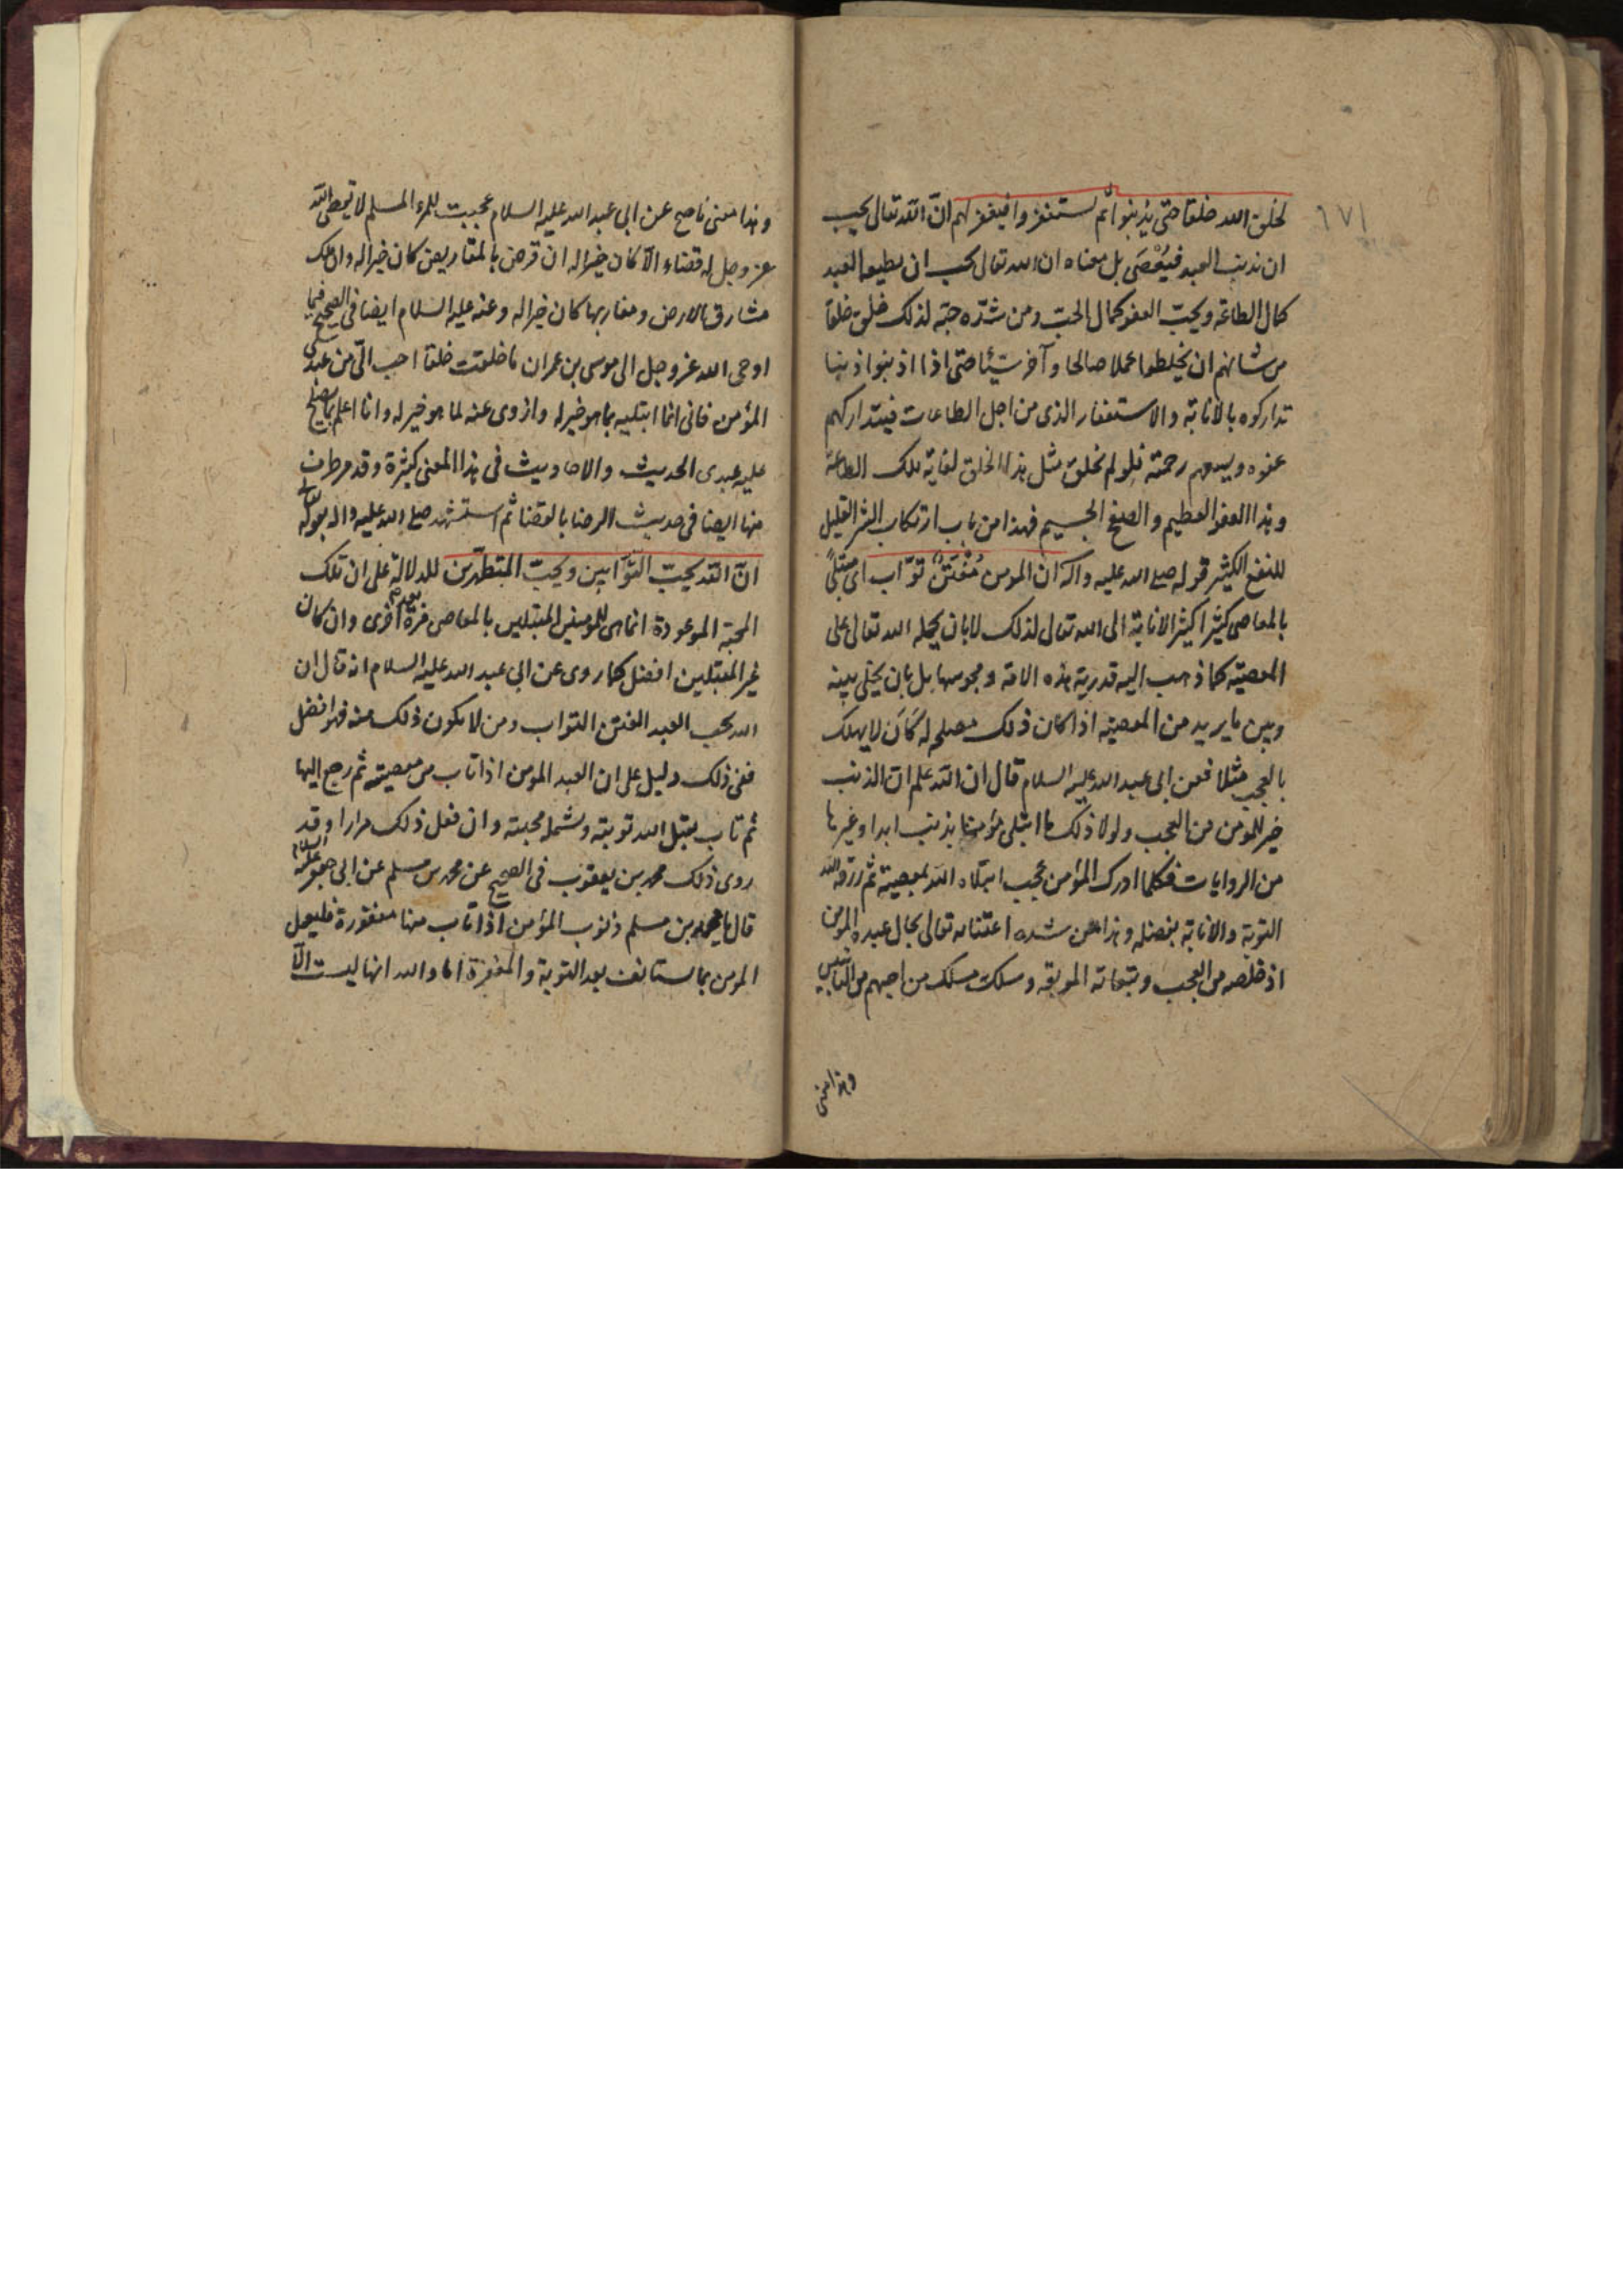 ١٧١
لخلق الله خلقا حتى يذنبوا ثم يستغفروا فيغفر لهم انّ الله تعالى يحب
ان يذنب العبد فيُعْصَى بل معناه ان الله تعالى يحب ان يطيعه العبد
كمال الطاعة ويحبّ العفو كمال الحبّ ومن شدّه حبّه لذلك خلق خلقا
من شانهم ان يخلطوا عملا صالحا وآخر سيّئا حتى اذا اذنبوا ذنبا
تداركوه بالانابة والاستغفار الذى من اجل الطاعات فيتداركهم
عفوه ويسعهم رحمته فلو لم يخلق مثل هذا الخلق لغاية تلك الطاعة
وهذا العفو العظيم والصفح الجسيم فهذا من باب ارتكاب الشر القليل
للنفع الكثير قوله صلى الله عليه واله ان المومن مُفْتَتَنٌ توّاب اى مبتلىً
بالمعاصى كثيرا كثير الانابة الى الله تعالى لذلك لا بان يجبله الله تعالى على
المعصيته كما ذهب اليه قدرية هذه الامة ومجوسها بل بان يخلى بينه
وبين ما يريد من المعصيته اذا كان ذلك مصلحه له كَاَن لا يهلك
بالعجب مثلا فعن ابى عبد الله عليه السلام قال ان الله علم ان الذنب
خير للمومن من العجب ولولا ذلك ما ابتلى مؤمنا بذنب ابدا وغيرها
من الروايات فكلما ادرك المؤمن عجب ابتلاه الله بمعصيته ثم رزقه الله
التوبة والانابة بفضله وهذا من شده اعتنائه تعالى بحال عبده المومن
اذ خلصه من العجب وتبعاته الموبقه وسلك مسلك من احبهم من التائبين
وهذا معنى
وهذا معنى ما صح عن ابى عبد الله عليه السلام عجبت للمرء المسلم لا يقضى الله
عز وجل له قضاء الّا كان خيرا له ان قرض بالمقاريض كان خيرا له وان ملك
مشارق الارض ومغاربها كان خيرا له وعنه عليه السلام ايضا فى الصحيح فيما
اوحى الله عز وجل الى موسى بن عمران ما خلقت خلقا احب الىّ من عبدى
المؤمن فانى انما ابتليه بما هو خير له وازوى عنه لما هو خير له وانا اعلم بما يصلح
عليه عبدى الحديث والاحاديث فى هذا المعنى كثيرة وقد مر طرف
منها ايضا فى حديث الرضا بالقضا ثم استشهد صلى الله عليه واله بقوله تعالى
انّ الله يحبّ التّوّابين ويحبّ المتطهّرين للدلالة على ان تلك
المحبة الموعودة انما هى للمومنين المبتلين بالمعاصى مرة بعد اخرى وان كان
غير المبتلين افضل كما روى عن ابى عبد الله عليه السلام انه قال ان
الله يحب العبد المفتن التواب ومن لا يكون ذلك منه فهو افضل
ففى ذلك دليل على ان العبد المومن اذا تاب من معصيته ثم رجع اليها
ثم تاب يقبل الله توبته وشمله محبته وان فعل ذلك مرارا وقد
روى ذلك محمد بن يعقوب فى الصحيح عن محمد بن مسلم عن ابى جعفر عليه السلام
قال يا محمد بن مسلم ذنوب المؤمن اذا تاب منها مغفورة فليعمل
المومن بما يستانف بعد التوبة والمغفرة اما والله انها ليست الّا